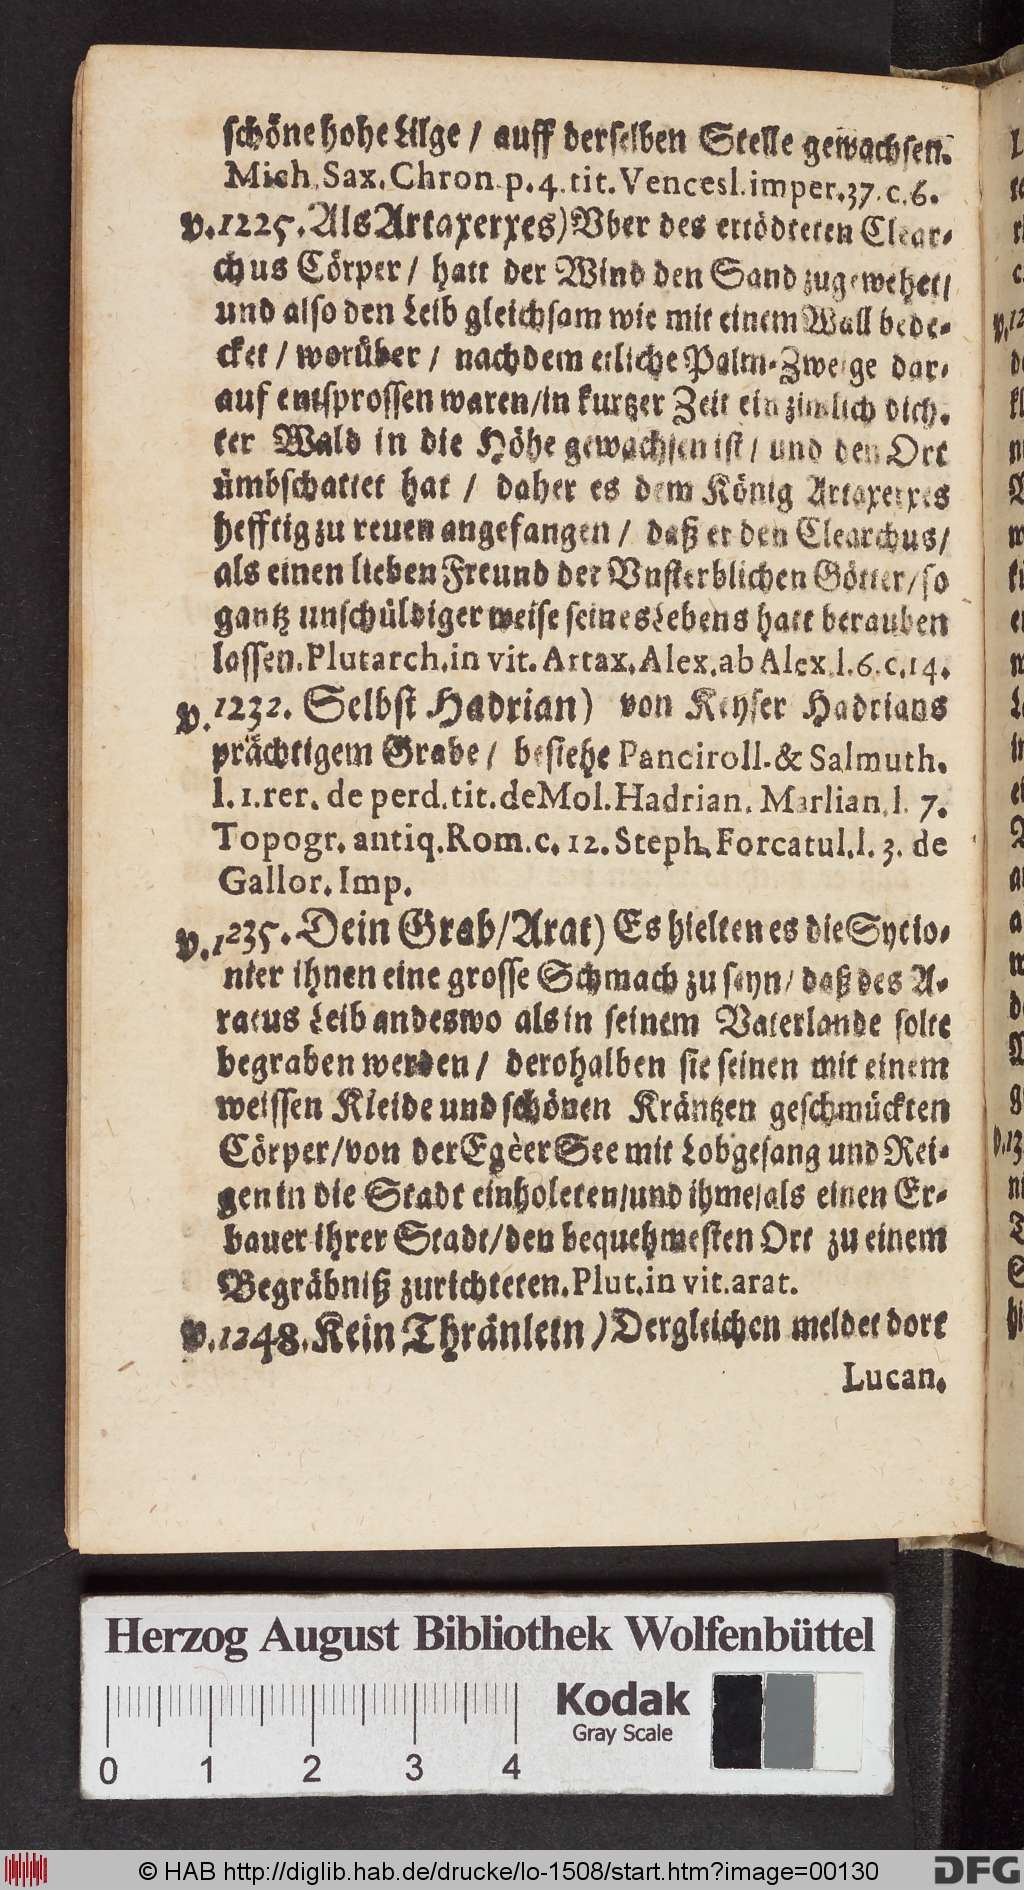 schöne hohe Lilge / auff derselben Stelle gewachsen.
Mich. Sax. Chron. p. 4. tit. Vencesl. imper. 37. c. 6.
v. 1225. Als Artaxerxes) Vber des ertödteten Clear-
chus Cörper / hatt der Wind den Sand zugewehet /
und also den Leib gleichsam wie mit einem Wall bede-
cket / worüber / nachdem etliche Palm-Zweige dar-
auf entsprossen waren / in kurtzer Zeit ein zimlich dich-
ter Wald in die Höhe gewachsen ist / und den Ort
ümbschattet hat / daher es dem König Artaxerxes
hefftig zu reuen angefangen / daß er den Clearchus /
als einen lieben Freund der Vnsterblichen Götter / so
gantz unschüldiger weise seines Lebens hatt berauben
lassen. Plutarch. in vit. Artax. Alex. ab Alex. l. 6. c. 14.
v. 1232. Selbst Hadrian) von Keyser Hadrians
prächtigem Grabe / besiehe Panciroll. & Salmuth.
l. 1. rer. de perd. tit. de Mol. Hadrian. Marlian. l. 7.
Topogr. antiq. Rom. c. 12. Steph. Forcatul. l. 3. de
Gallor. Imp.
v. 1235. Dein Grab / Arat) Es hielten es die Sycio-
nier ihnen eine grosse Schmach zu seyn / daß des A-
ratus Leib andeswo als in seinem Vaterlande solte
begraben werden / derohalben sie seinen mit einem
weissen Kleide und schönen Kräntzen geschmückten
Cörper / von der Egèer See mit Lobgesang und Rei-
gen in die Stadt einholeten / und ihme / als einen Er-
bauer ihrer Stadt / den bequehmesten Ort zu einem
Begräbniß zurichteten. Plut. in vit. arat.
v. 1248. Kein Thränlein) Dergleichen meldet dort
Lucan.
Herzog August Bibliothek Wolfenbüttel
Kodak
Gray Scale
0 1 2 3 4
© HAB http://diglib.hab.de/drucke/lo-1508/start.htm?image=00130
DFG